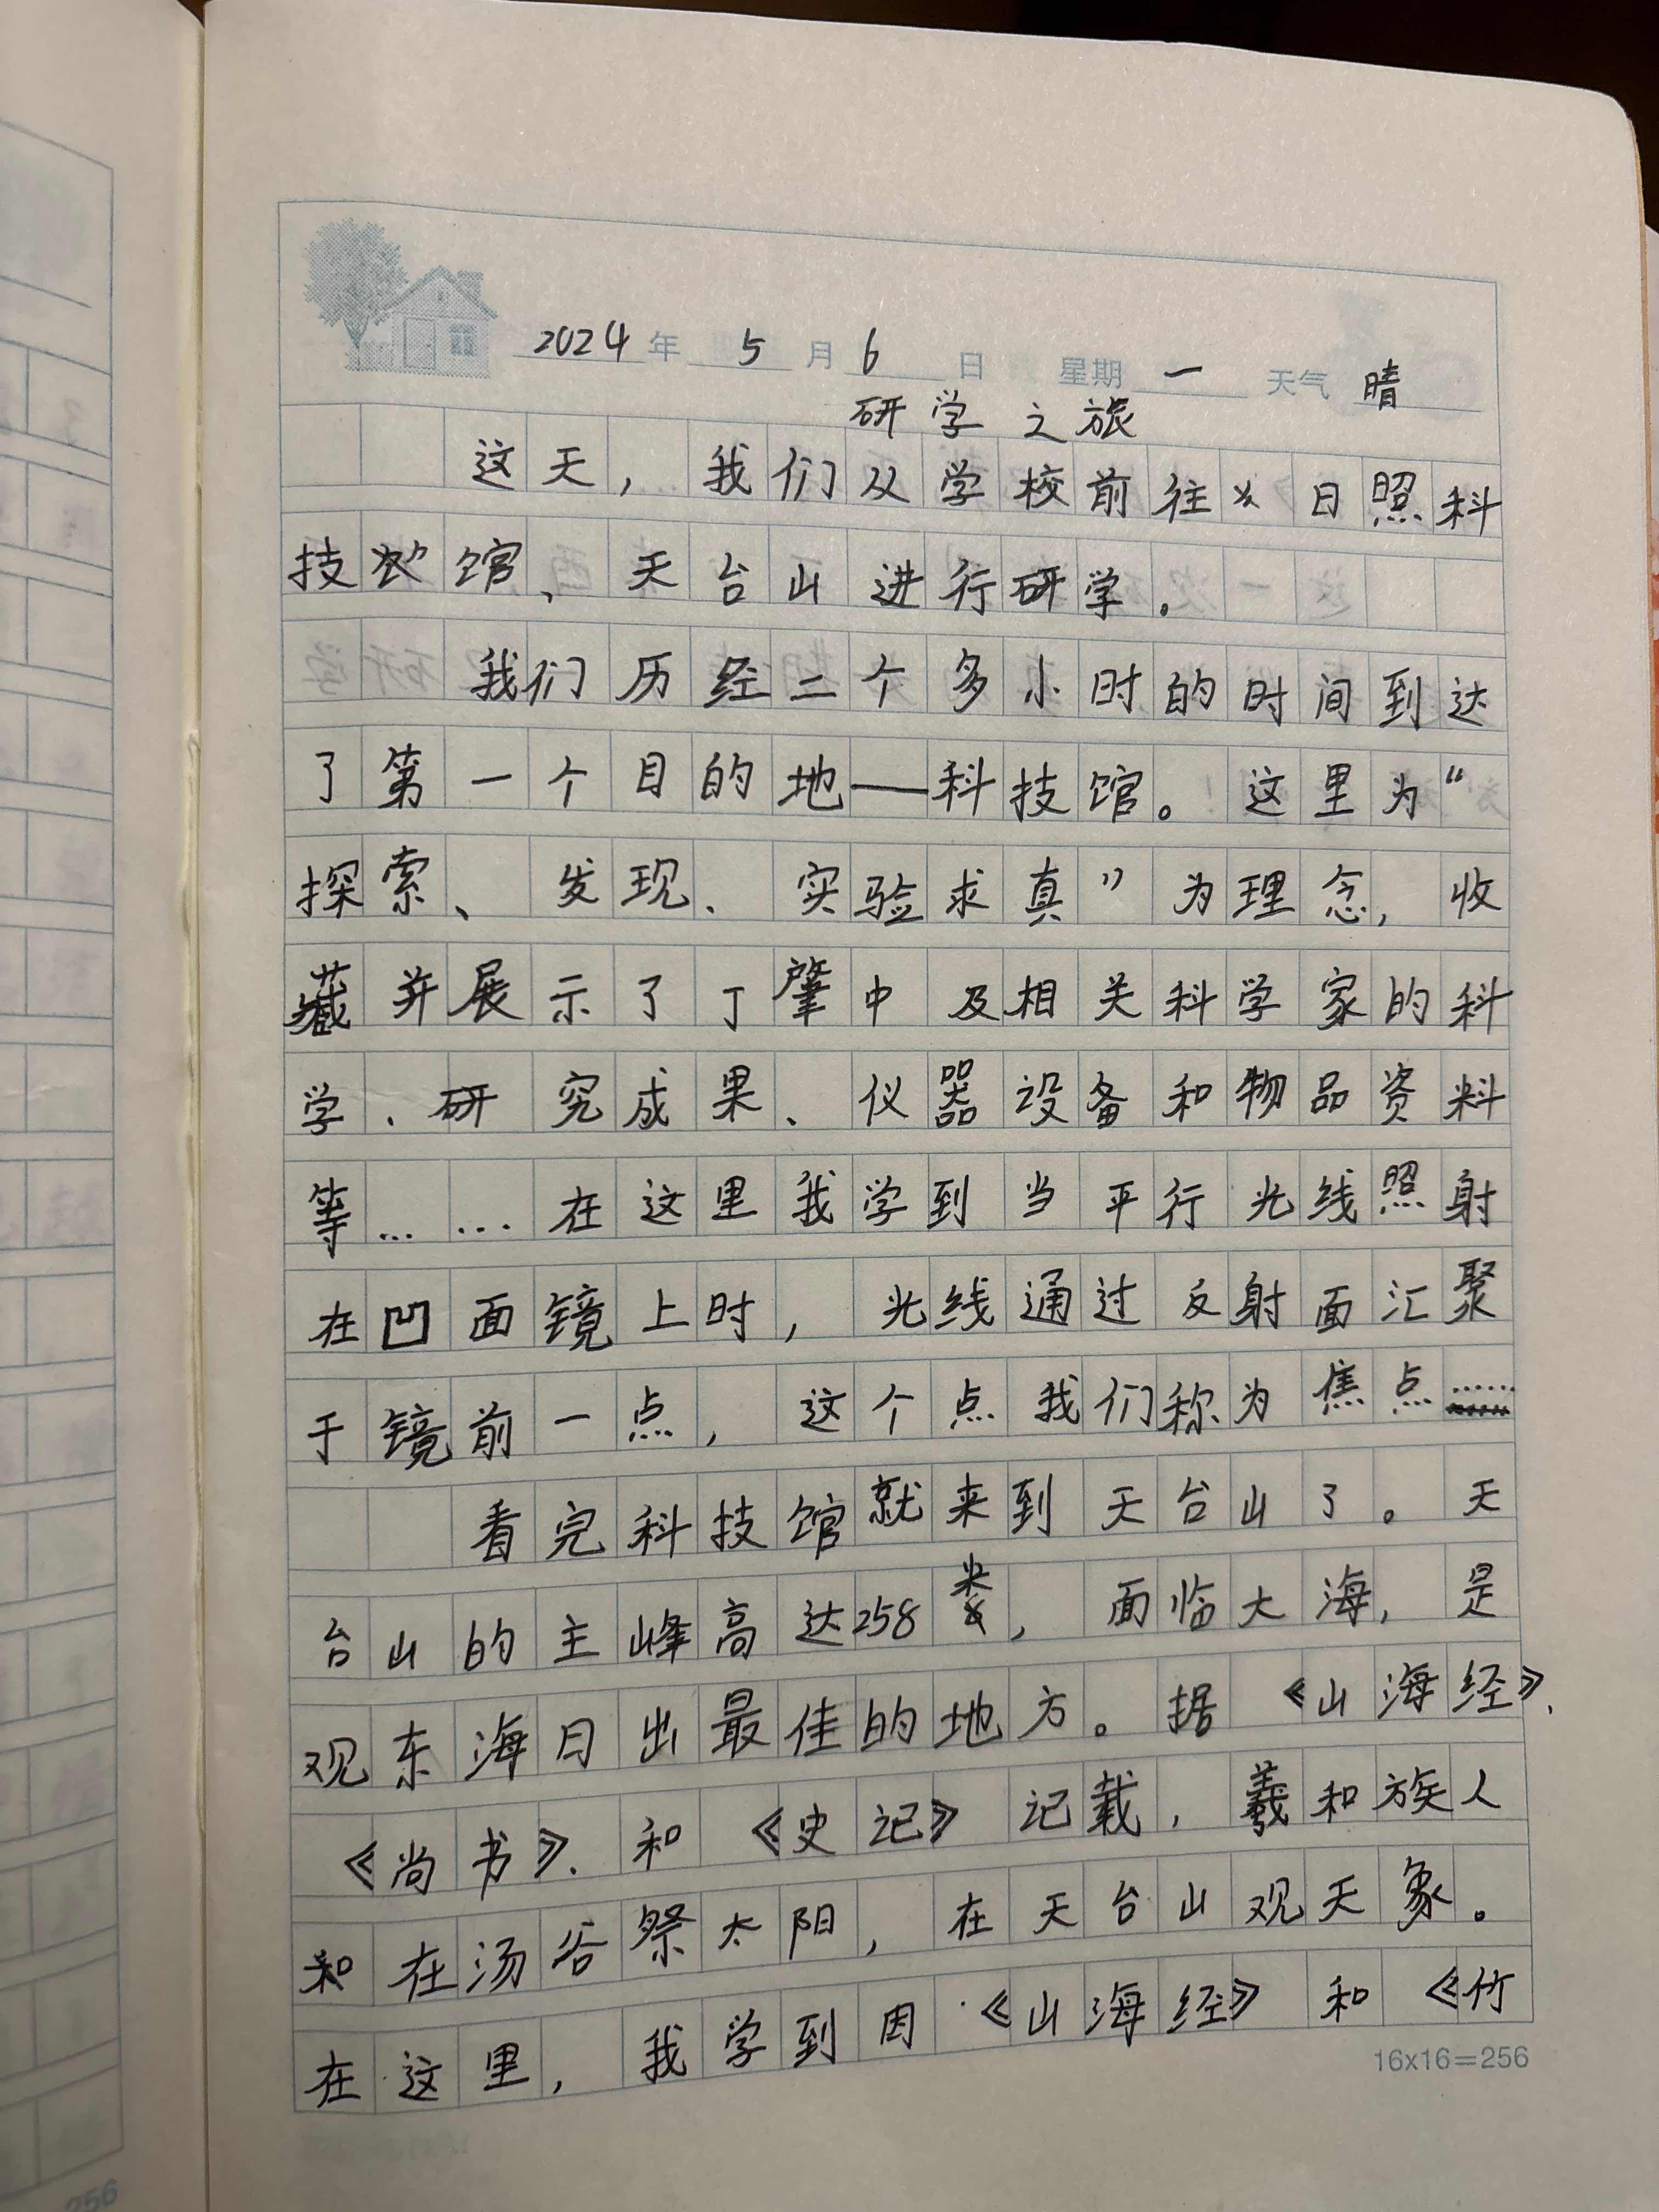 2024年 5月6日 星期一 天气 晴
研学之旅
这天，我们从学校前往日照科
技馆、天台山进行研学。
我们历经二个多小时的时间到达
了第一个目的地——科技馆。这里为“
探索、发现、实验求真”为理念，收
藏并展示了丁肇中及相关科学家的科
学、研究成果、仪器设备和物品资料
等……在这里我学到当平行光线照射
在凹面镜上时，光线通过反射面汇聚
于镜前一点，这个点我们称为焦点……
看完科技馆就来到天台山了。天
台山的主峰高达258米，面临大海，是
观东海日出最佳的地方。据《山海经》、
《尚书》、和《史记》记载，羲和族人
和在汤谷祭太阳，在天台山观天象。
在这里，我学到因《山海经》和《竹
16x16=256
256